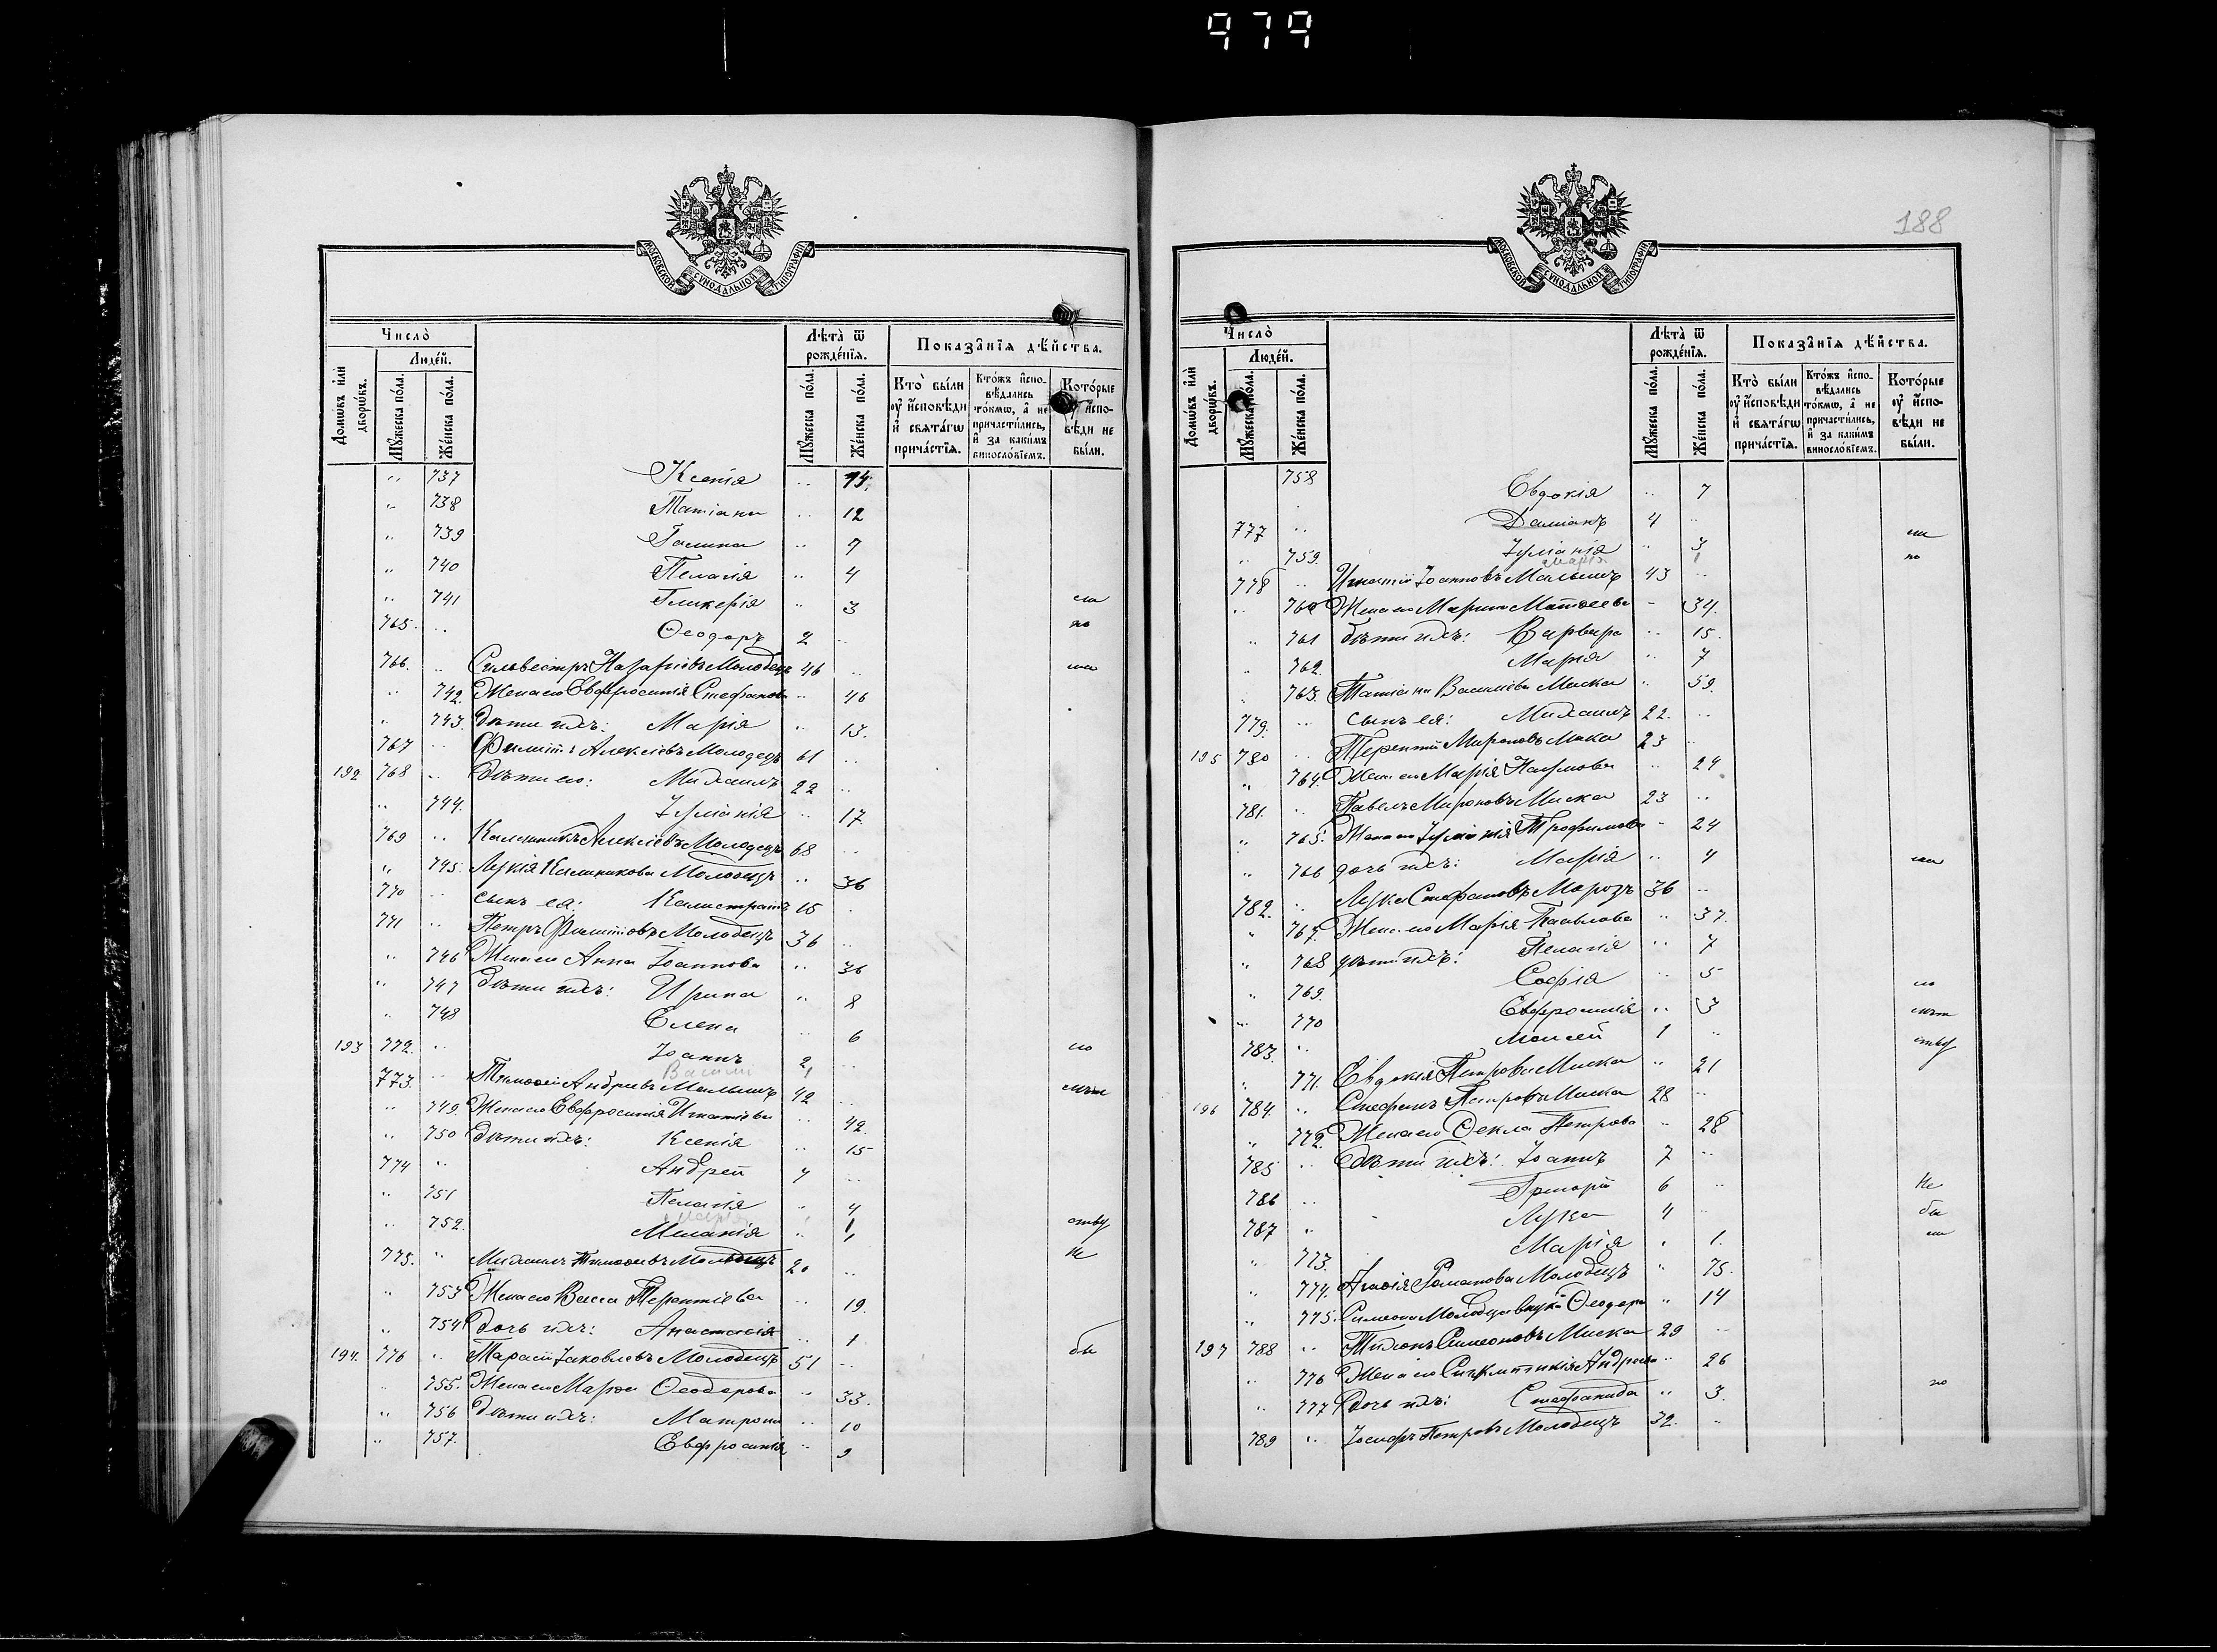 979
МОСКОВСКОЙ СѴНОДАЛЬНОЙ ТИПОГРАФІИ
Число̀
Домѡ́въ и҆лѝ дворѡ́въ.
Люде́й.
Мꙋ́жеска по́ла.
Же́нска по́ла.
Лѣ́та ѿ рожде́нїѧ.
Мꙋ́жеска по́ла.
Же́нска по́ла.
Показа̑нїѧ дѣ́йства.
Кто̀ бы́ли ᲂу҆ и҆сповѣ́ди и҆ свѧта́гѡ прича́стїѧ.
Кто́жъ и҆сповѣ́дались то́кмѡ, а҆ не причасти́лись, и҆ за каки́мъ винослѡ́вїемъ.
Кото́рые ᲂу҆ и҆спо- вѣ́ди не бы́ли.
" 737 Ксенія " 15
" 738 Татіана " 12
" 739 Галина " 7
" 740 Пелагія " 4
" 741 Гликерія " 3
765. " Ѳеодоръ 2 "
766. " Силвестръ Назаріевъ Молодецъ 46 "
" 742. Жена его Евфросинія Стефанова " 46
" 743. дѣти ихъ: Марія " 13.
767 " Филиппъ Алексіевъ Молодецъ 61 "
192 768 " Дѣти его: Михаилъ 22 "
" 744. Іуліанія " 17.
769 " Калинникъ Алексіевъ Молодецъ 68 "
" 745. Лукія Калинникова Молодецъ " 36
770 " сынъ ея: Калистратъ 15 "
771 " Петръ Филипповъ Молодецъ 36 "
" 746 Жена его Анна Іоаннова " 36
" 747 Дѣти ихъ: Ирина " 8
" 748 Елена " 6
193 772. " Іоаннъ 2 "
Василій 1
773. " Тимоѳей Андреевъ Малышъ 42 "
" 749. Жена его Евфросинія Игнатіева " 42.
" 750 Дѣти ихъ: Ксенія " 15
774 " Андрей 7 "
" 751 Пелагія " 4
Марія
" 752. Меланія " 1
775. " Михаилъ Тимоѳеевъ 20 "
" 753 Жена его Васса Терентіева " 19.
" 754 Дочь ихъ: Анастасія " 1
194. 776 " Тарасій Іаковлевъ Молодецъ 51 "
" 755. Жена его Марѳа Ѳеодорова " 33.
" 756 Дѣти ихъ: Матрона " 10
" 757. Евфросинія " 9
188
МОСКОВСКОЙ СѴНОДАЛЬНОЙ ТИПОГРАФІИ
Число̀
Домѡ́въ и҆лѝ дворѡ́въ.
Люде́й.
Мꙋ́жеска по́ла.
Же́нска по́ла.
Лѣ́та ѿ рожде́нїѧ.
Мꙋ́жеска по́ла.
Же́нска по́ла.
Показа̑нїѧ дѣ́йства.
Кто̀ бы́ли ᲂу҆ и҆сповѣ́ди и҆ свѧта́гѡ прича́стїѧ.
Кто́жъ и҆сповѣ́дались то́кмѡ, а҆ не причасти́лись, и҆ за каки́мъ винослѡ́вїемъ.
Кото́рые ᲂу҆ и҆спо- вѣ́ди не бы́ли.
758 Евдокія " 7
777 " Даміанъ 4 "
" 759. Іуліанія " 3
Марія 1
778 " Игнатій Іоанновъ Малышъ 43 "
" 760 Жена его Марина Матѳеева " 34.
" 761 дѣти ихъ: Варвара " 15.
" 762. Марія " 7
" 763. Татіана Василіева Миска " 59.
779. " сынъ ея: Михаилъ 22. "
195 780 " Терентій Мироновъ Миска 23 "
" 764. Жена его Марія Наумова " 24
781. " Павелъ Мироновъ Миска 23 "
" 765. Жена его Іуліанія Трофимова " 24
" 766 дочь ихъ: Марія " 4
782. " Лука Стефановъ Морозъ 36 "
" 767. Жена его Марія Павлова " 37.
" 768 дѣти ихъ: Пелагія " 7
" 769. Софія " 5
" 770 Евфросинія " 3
783. " Моисей 1 "
" 771. Евдокія Петрова Миска " 21
196 784. " Стефанъ Петровъ Миска 28 "
" 772. Жена его Ѳекла Петрова " 28
785 " Дѣти ихъ: Іоаннъ 7 "
786 " Григорій 6 " Не
787 " Лука 4 " бы
" 773. Марія " 1.
" 774. Агаѳія Романова Молодецъ " 75.
" 775. Симеона Молодца внука Ѳеодора " 14
197 788 " Тихонъ Симеоновъ Миска 29 "
" 776 Жена его Синклитикія Андреева " 26
" 777 Дочь ихъ: Стефанида " 3.
789 " Іосифъ Петровъ Молодецъ 32. "